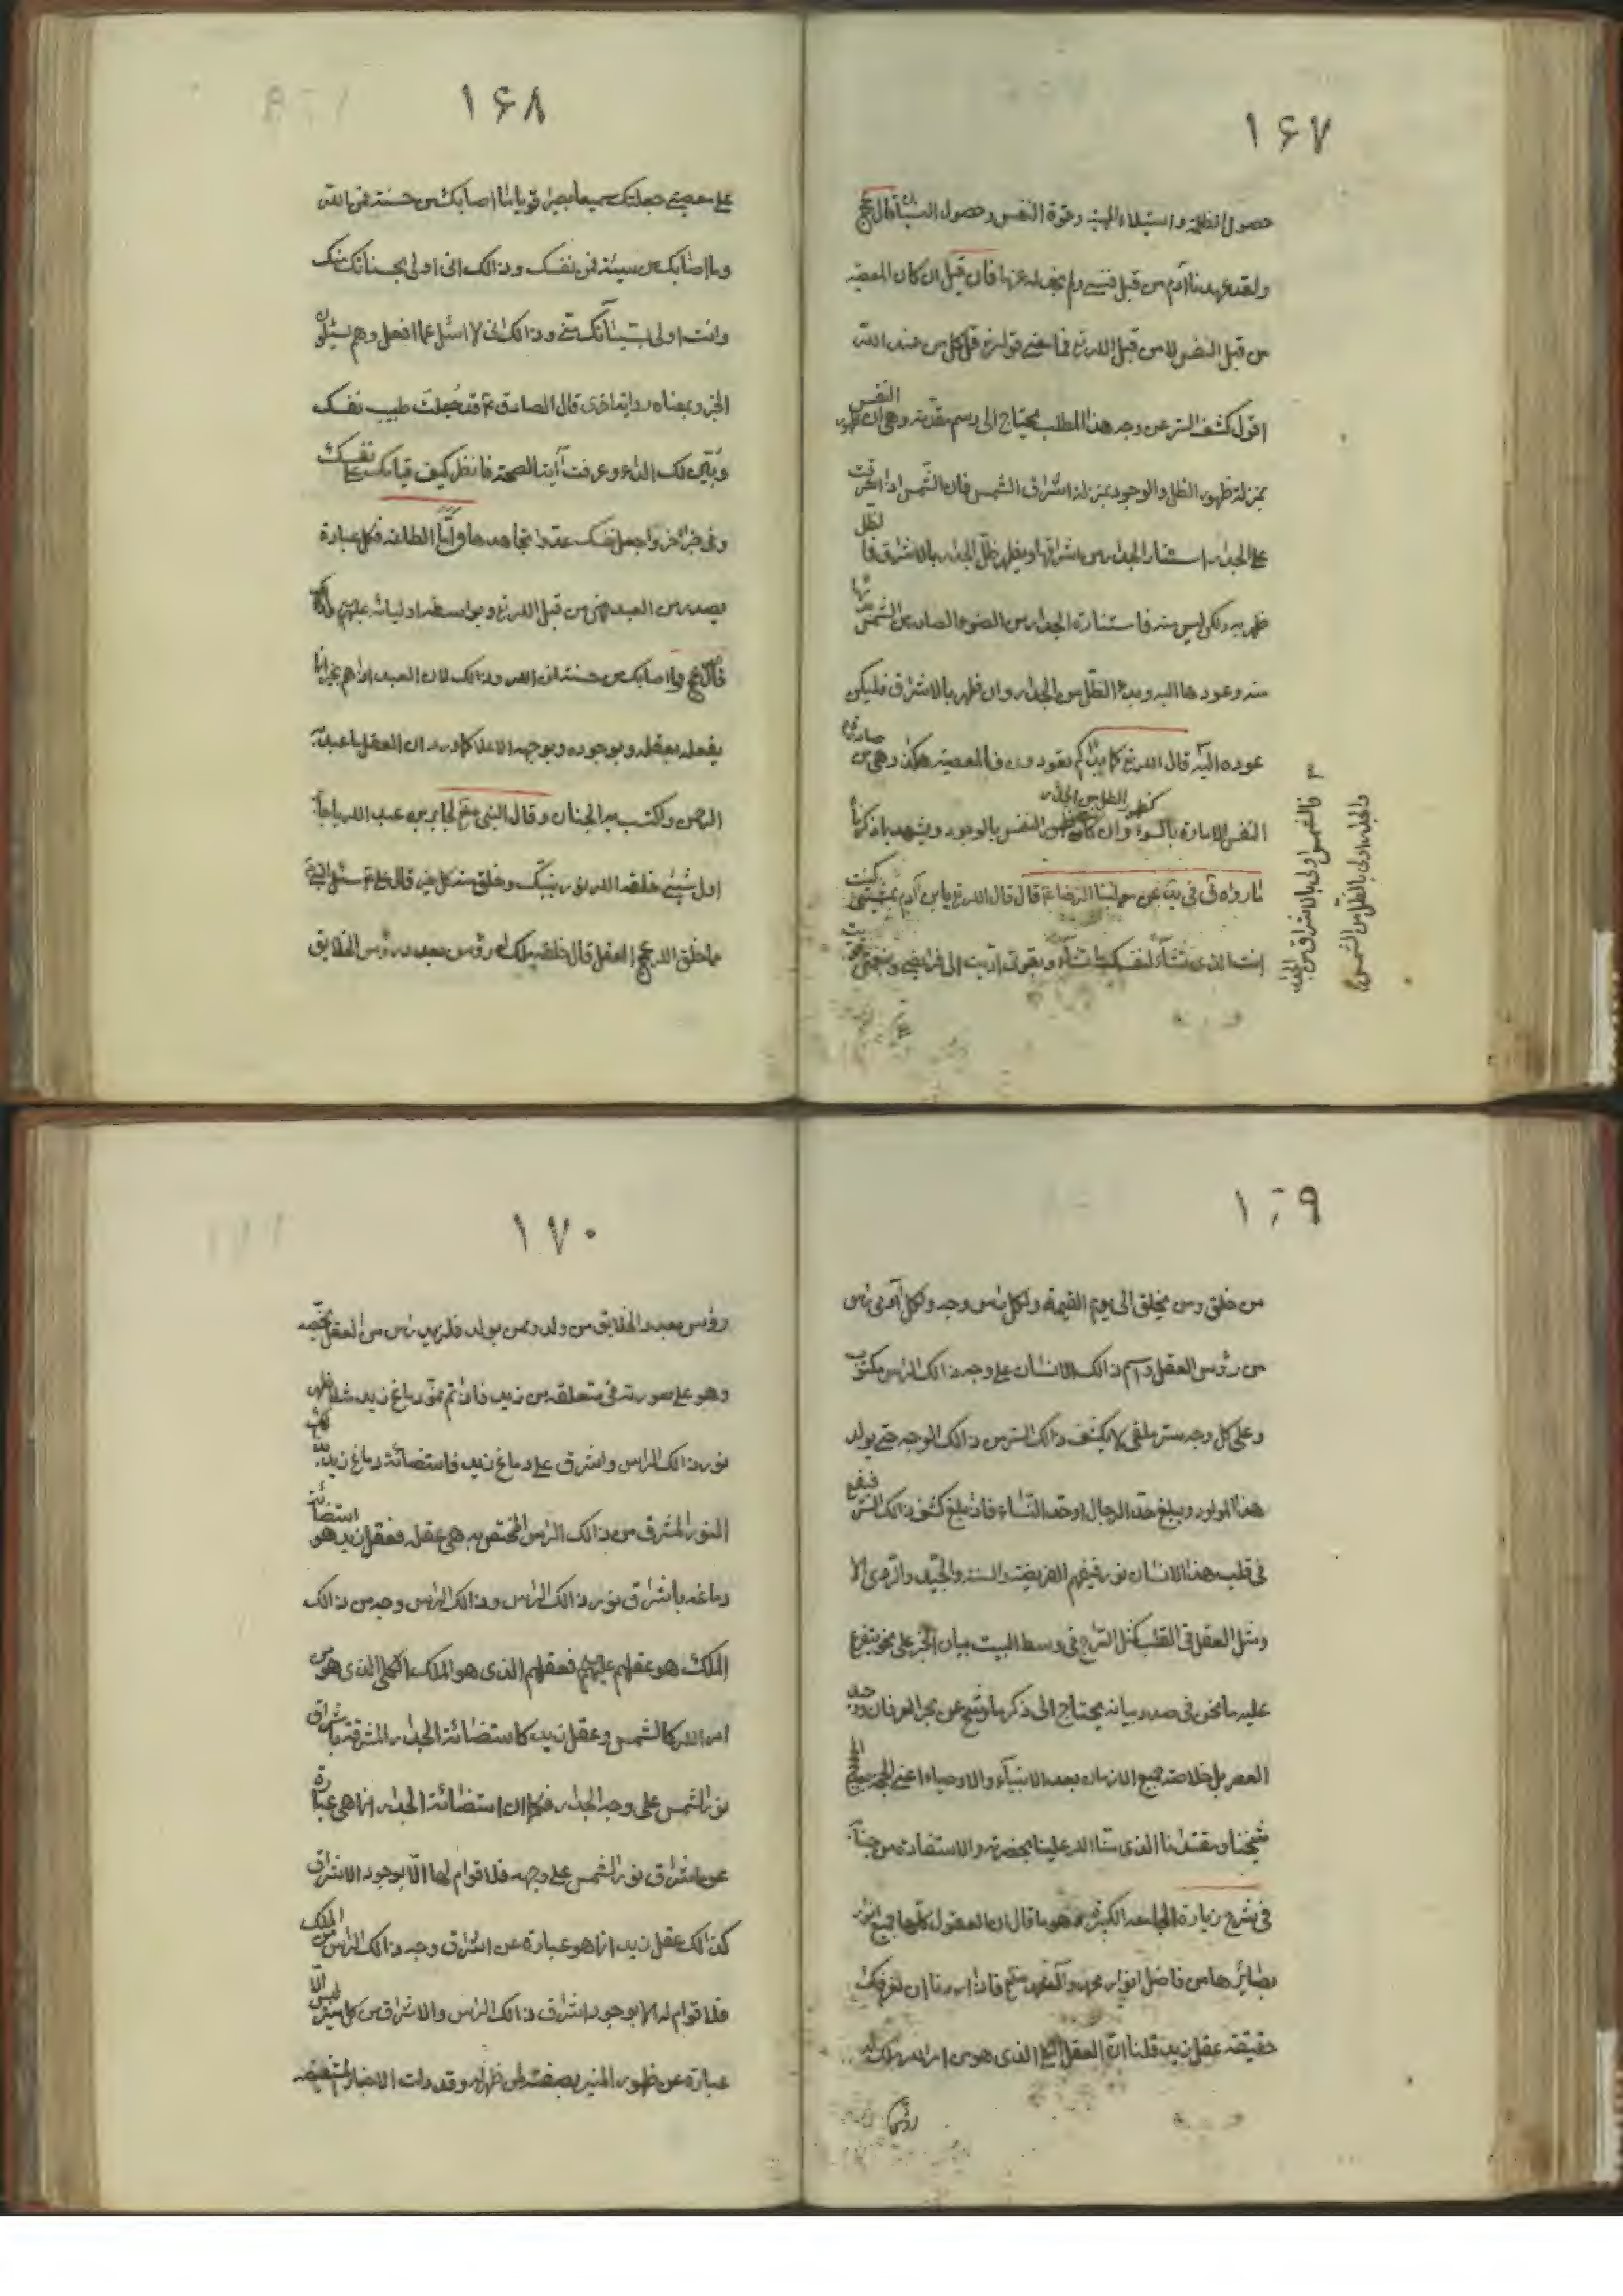 ١۶٧
حصول الظلمة واستيلاء المهية وقوة النفس وحصول السيئات قال عج
ولقد عهدنا آدم من قبل فنسى ولم نجد له عزما فان قيل ان كان المعصية
من قبل النفس لا من قبل الله تع فما معنى قوله تع قل كل من عند الله
اقول كشف الستر عن وجه هذا المطلب يحتاج الى رسم مقدمة وهي ان النفس ظهور
بمنزلة ظهور الظل والوجود بمنزلة اشراق الشمس فان الشمس اذا اشرقت
على الجدار استنار الجدار من اشراقها ويظهر ظل الجدار بالاشراق فالظل
ظهر به ولكن ليس منه فاستنارة الجدار من الضوء الصادر من الشمس
منه وعودها اليه وبدء الظل من الجدار وان ظهر بالاشراق فليكن
عوده اليه قال الله تع كما بداكم تعودون فالمعصية هكذا وهي من صادرة
النفس الامارة بالسوء وان كان ظهور النفس بالوجود كظهور الظل من الجدار ويشهد بما ذكرنا
ما رواه في عن مولينا الرضا ع قال قال الله تع يابن آدم بمشيتي كنت
انت الذي تشاء لنفسك ما تشاء وبقوتي اديت الى فرايضي وبنعمتي قويت
فالشمس اولى بالاشراق من الجدار
والجدار اولى بالظل من الشمس
١۶٨
على معصيتي جعلتك سميعا بصيرا قويا ما اصابك من حسنة فمن الله
وما اصابك من سيئة فمن نفسك وذالك اني اولى بحسناتك منك
وانت اولى بسيئاتك مني وذالك اني لا اسئل عما افعل وهم يسئلون
الخبر وبمعناه رواية اخرى قال الصادق ع قد جعلت طبيب نفسك
وبين لك الداء وعرفت آية الصحة فانظر كيف قيامك على نفسك
وفي خبر آخر واجعل نفسك عدوا تجاهدها واما الطاعة فكل عبارة
يصدر من العبد فهي من قبل الله تع وبواسطة اوليائه عليهم
قال عج ما اصابك من حسنة فمن الله وذالك لان العبد اذا هم بخير انما
يفعله بعقله وبوجوده وبوجهه الاعلا كما ورد ان العقل ما عبد به
الرحمن واكتسب به الجنان وقال النبي صلع لجابر بن عبد الله يا جابر
اول شيئ خلقه الله نور نبيك وخلق منه كل خير قال على ع سئل النبي
مما خلق الله عج العقل قال خلقه ملك له رؤس بعدد رؤس الخلايق
١٦٩
من خلق ومن يخلق الى يوم القيمة ولكل راس وجه ولكل آدمي راس
من رؤس العقل واسم ذالك الانسان على وجه ذالك الراس مكتوب
وعلى كل وجه ستر ملقى لا يكشف ذالك الستر من ذالك الوجه حتى يولد
هذا المولود ويبلغ حد الرجال او حد النساء فاذا بلغ كشف ذالك الستر فيقع
في قلب هذا الانسان نور فيفهم الفريضة والسنة والجيد والردى الا
ومثل العقل في القلب كمثل السراج في وسط البيت بيان الخبر على نحو يتفرع
عليه ما نحن في صدد بيانه يحتاج الى ذكر ما وشح عن بحر العرفان وحد
العصر بل خلاصة جميع الازمان بعد الانبياء والاوصياء اعني
شيخنا ومقتدانا الذي منّا الله علينا بحضرته والاستفادة من جنابه
في شرح زيارة الجامعة الكبيرة وهو ما قال ان العقول كلها جميع انوار
بصائرها من فاضل انوار محمد وآل محمد صلع فاذا اردنا ان نعرفك
حقيقة عقل زيد قلنا ان العقل الذي هو من امر الله ملك له
رؤس
١٧٠
رؤس بعدد الخلايق من ولد ومن يولد فلزيد راس من العقل يخصه
وهو على صورته في تعلقه من زيد فاذا تم نمو دماغ زيد مثلا ظهر
نور ذالك الراس واشرق على دماغ زيد فاستضائة دماغ زيد
النور المشرق من ذالك الراس المختص به هي عقله فعقل زيد هو استضائة
دماغه باشراق نور ذالك الراس وذالك الراس وجه من ذالك
الملك هو عقلهم عليهم فعقلهم الذي هو الملك الكلي الذي هو من
امر الله كالشمس وعقل زيد كاستضائة الجدار المشرقة باشراق
نور الشمس على وجه الجدار فكما ان استضائة الجدار انما هي عبارة
عن اشراق نور الشمس على وجهه فلا قوام لها الا بوجود الاشراق
كذالك عقل زيد انما هو عبارة عن اشراق وجه ذالك الراس من الملك
فلا قوام له الا بوجود اشراق ذالك الراس والاشراق من كل منير ليس الا
عبارة عن ظهور المنير بصفته لمن ظهر له وقد دلت الاخبار المستفيضة